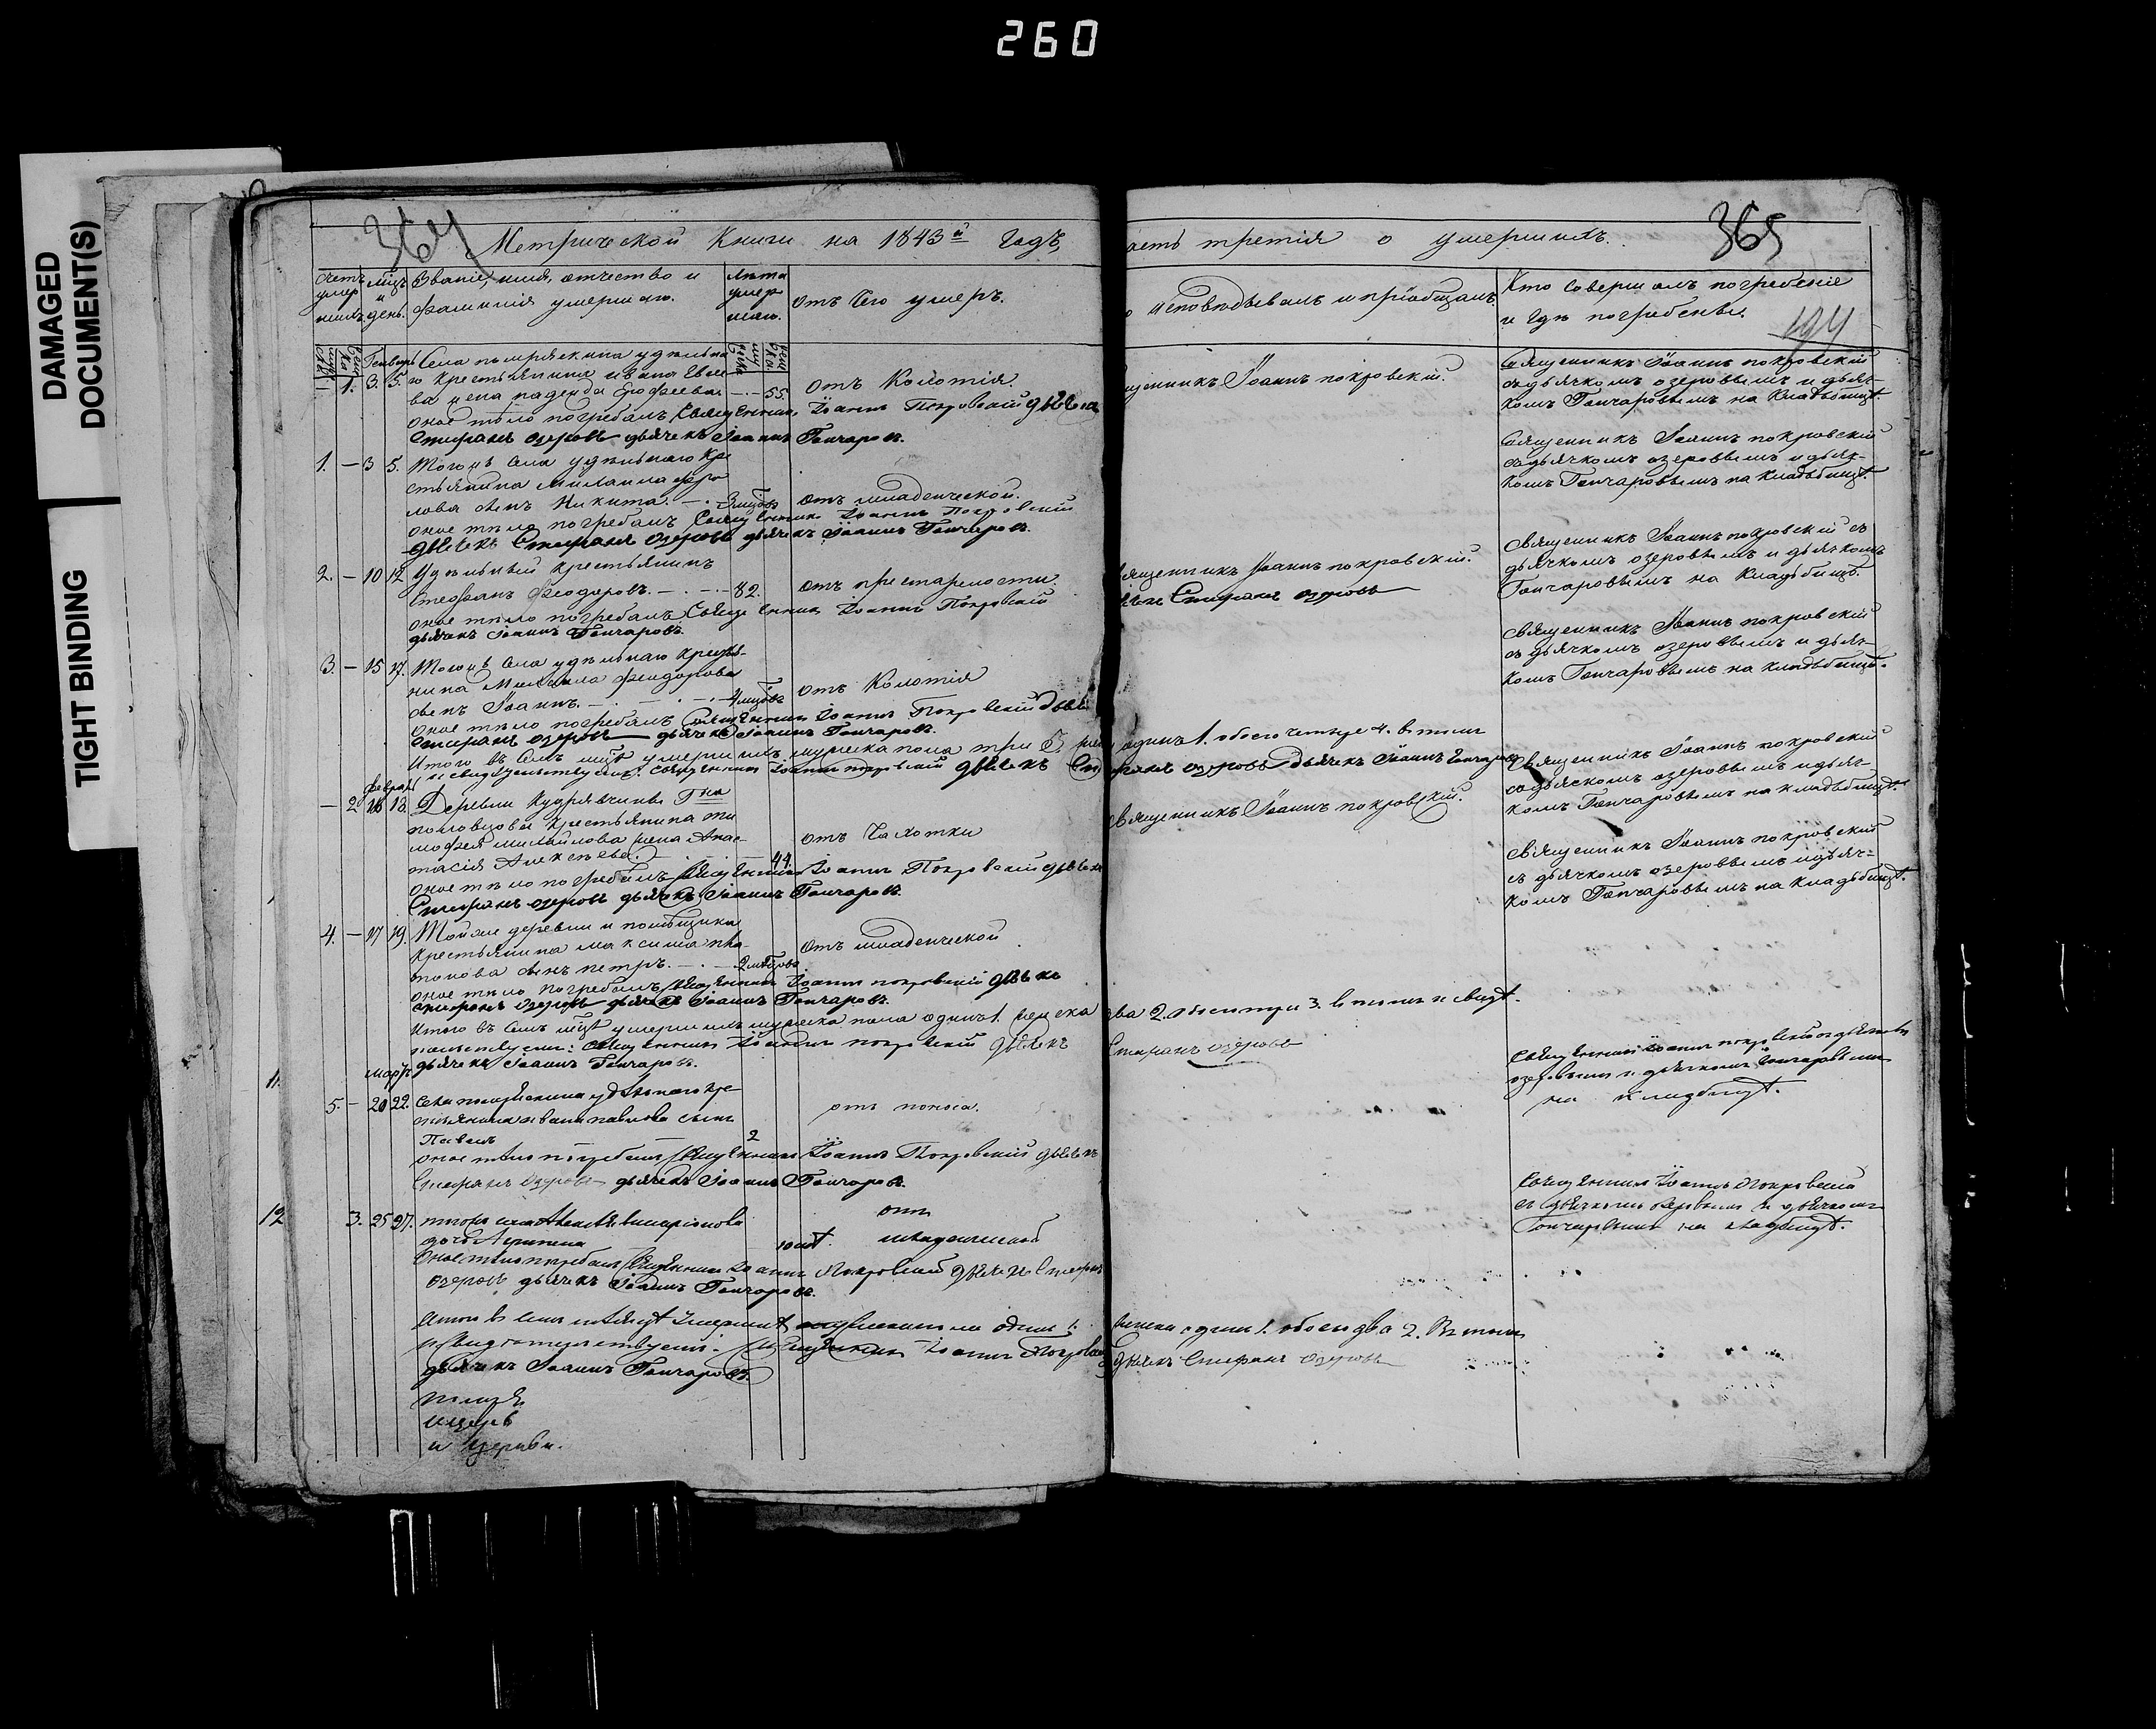 260
DAMAGED
DOCUMENT(S)
TIGHT BINDING
364
365
194
Метрической Книги на 1843й Годъ,
асть третія о умершихъ.
Счетъ умер шихъ
мсцъ и день.
Званіе, имя, отчество и фамилія умершаго.
лѣта умер шаго.
отъ Чего умеръ.
исповѣдывалъ и пріобщалъ
Кто Совершалъ погребеніе
и Гдѣ погребены.
Генварь
1. 3. 5.
ва жена надежда Ерофеева 55.
отъ Колотія.
щенникъ Іоаннъ покровскій.
Священникъ Іоаннъ покровскій
съ дьячкомъ озеровымъ и дьяч-
комъ Гончаровымъ на Кладбищѣ.
оное тѣло погребалъ Священникъ Іоаннъ Покровскій дьячекъ
Стефанъ озеровъ дьячекъ Іоаннъ Гончаровъ.
1. — 3 5. Тогожъ Села удѣльнаго Кре
стьянина Михаила фро
лова сынъ Никита. 3 мсцовъ
отъ младенческой.
Священникъ Іоаннъ покровскій
съ дьячкомъ озеровымъ и дьяч-
комъ Гончаровымъ на Кладбищѣ.
оное тѣло погребалъ Священникъ Іоаннъ Покровскій
дьячекъ Стефанъ Озеровъ дьячекъ Іоаннъ Гончаровъ.
2. — 10 12 Удѣльный крестьянинъ
Стефанъ Феодоровъ. — 82.
отъ престарелости.
вященникъ Іоаннъ покровскій.
Стефанъ озеровъ
Священникъ Іоаннъ покровскій съ
дьячкомъ озеровымъ и дьячкомъ
Гончаровымъ на Кладбищѣ.
оное тѣло погребалъ Священникъ Іоаннъ Покровскій
дьячекъ Іоаннъ Гончаровъ.
3. — 15 17. Тогожъ Села удѣльнаго крестья-
нина Михаила феодорова
сынъ Іоаннъ. 4 мсцовъ
отъ Колотія
Священникъ Іоаннъ покровскій
съ дьячкомъ озеровымъ и дьяч-
комъ Гончаровымъ на кладбищѣ.
оное тѣло погребалъ Священникъ Іоаннъ Покровскій
Стефанъ озеровъ дьячекъ Іоаннъ Гончаровъ.
Итого въ Семъ мсцѣ умершихъ мужеска пола три 3 одинъ 1. обоего четыре 4. въ томъ
и свидѣтельствуемъ: священникъ Іоаннъ покровскій дьячекъ Стефанъ озеровъ дьячекъ Іоаннъ Гончаровъ
Февраль
— 2 16 18. Деревни Кудрявчины Гна
крестьянина ти
мофея михайлова жена Анас-
тасія Алексѣева. 44.
отъ Чахотки
священникъ Іоаннъ покровскій.
Священникъ Іоаннъ покровскій
съ дьячкомъ озеровымъ и дьяч-
комъ Гончаровымъ на кладбищѣ.
оное тѣло погребалъ Священникъ Іоаннъ Покровскій дьячекъ
Стефанъ озеровъ дьячекъ Іоаннъ Гончаровъ.
4. — 17 19. Тойже деревни и помѣщика
крестьянина максима пла-
тонова сынъ петръ.
отъ младенческой
Священникъ Іоаннъ покровскій
съ дьячкомъ озеровымъ и дьяч-
комъ Гончаровымъ на Кладбищѣ.
оное тѣло погребалъ Священникъ Іоаннъ покровскій
Стефанъ Озеровъ дьячекъ Іоаннъ Гончаровъ.
Итого въ Семъ мсцѣ умершихъ мужеска пола одинъ 1. женска два 2. обоего три 3. въ томъ и свидѣ-
тельствуемъ: Священникъ Іоаннъ покровскій дьячекъ Стефанъ озеровъ
дьячекъ Іоаннъ Гончаровъ.
мартъ
11. 5. — 20 22. Села удѣльнаго кре-
стьянина ивана павлова сынъ
Павелъ 2
отъ поноса.
Священникъ Іоаннъ покровскій съ дьячкомъ
озеровымъ и дьячкомъ Гончаровымъ
на кладбищѣ.
оное тѣло погребалъ Священникъ Іоаннъ Покровскій дьячекъ
Стефанъ Озеровъ дьячекъ Іоаннъ Гончаровъ.
12 3. 25 27.
отъ
младенческой
Священникъ Іоаннъ Покровскій
съ дьячкомъ Озеровымъ и дьячкомъ
Гончаровымъ на кладбищѣ.
Оное тѣло погребалъ Священникъ Іоаннъ Покровскій дьячекъ Стефанъ
Озеровъ дьячекъ Іоаннъ Гончаровъ.
Итого въ семъ мсцѣ Умершихъ одинъ 1. женска одинъ 1. обоего два 2. Въ томъ
и Свидѣтельствуемъ: Священникъ Іоаннъ Покровскій дьячекъ Стефанъ Озеровъ
дьячекъ Іоаннъ Гончаровъ.